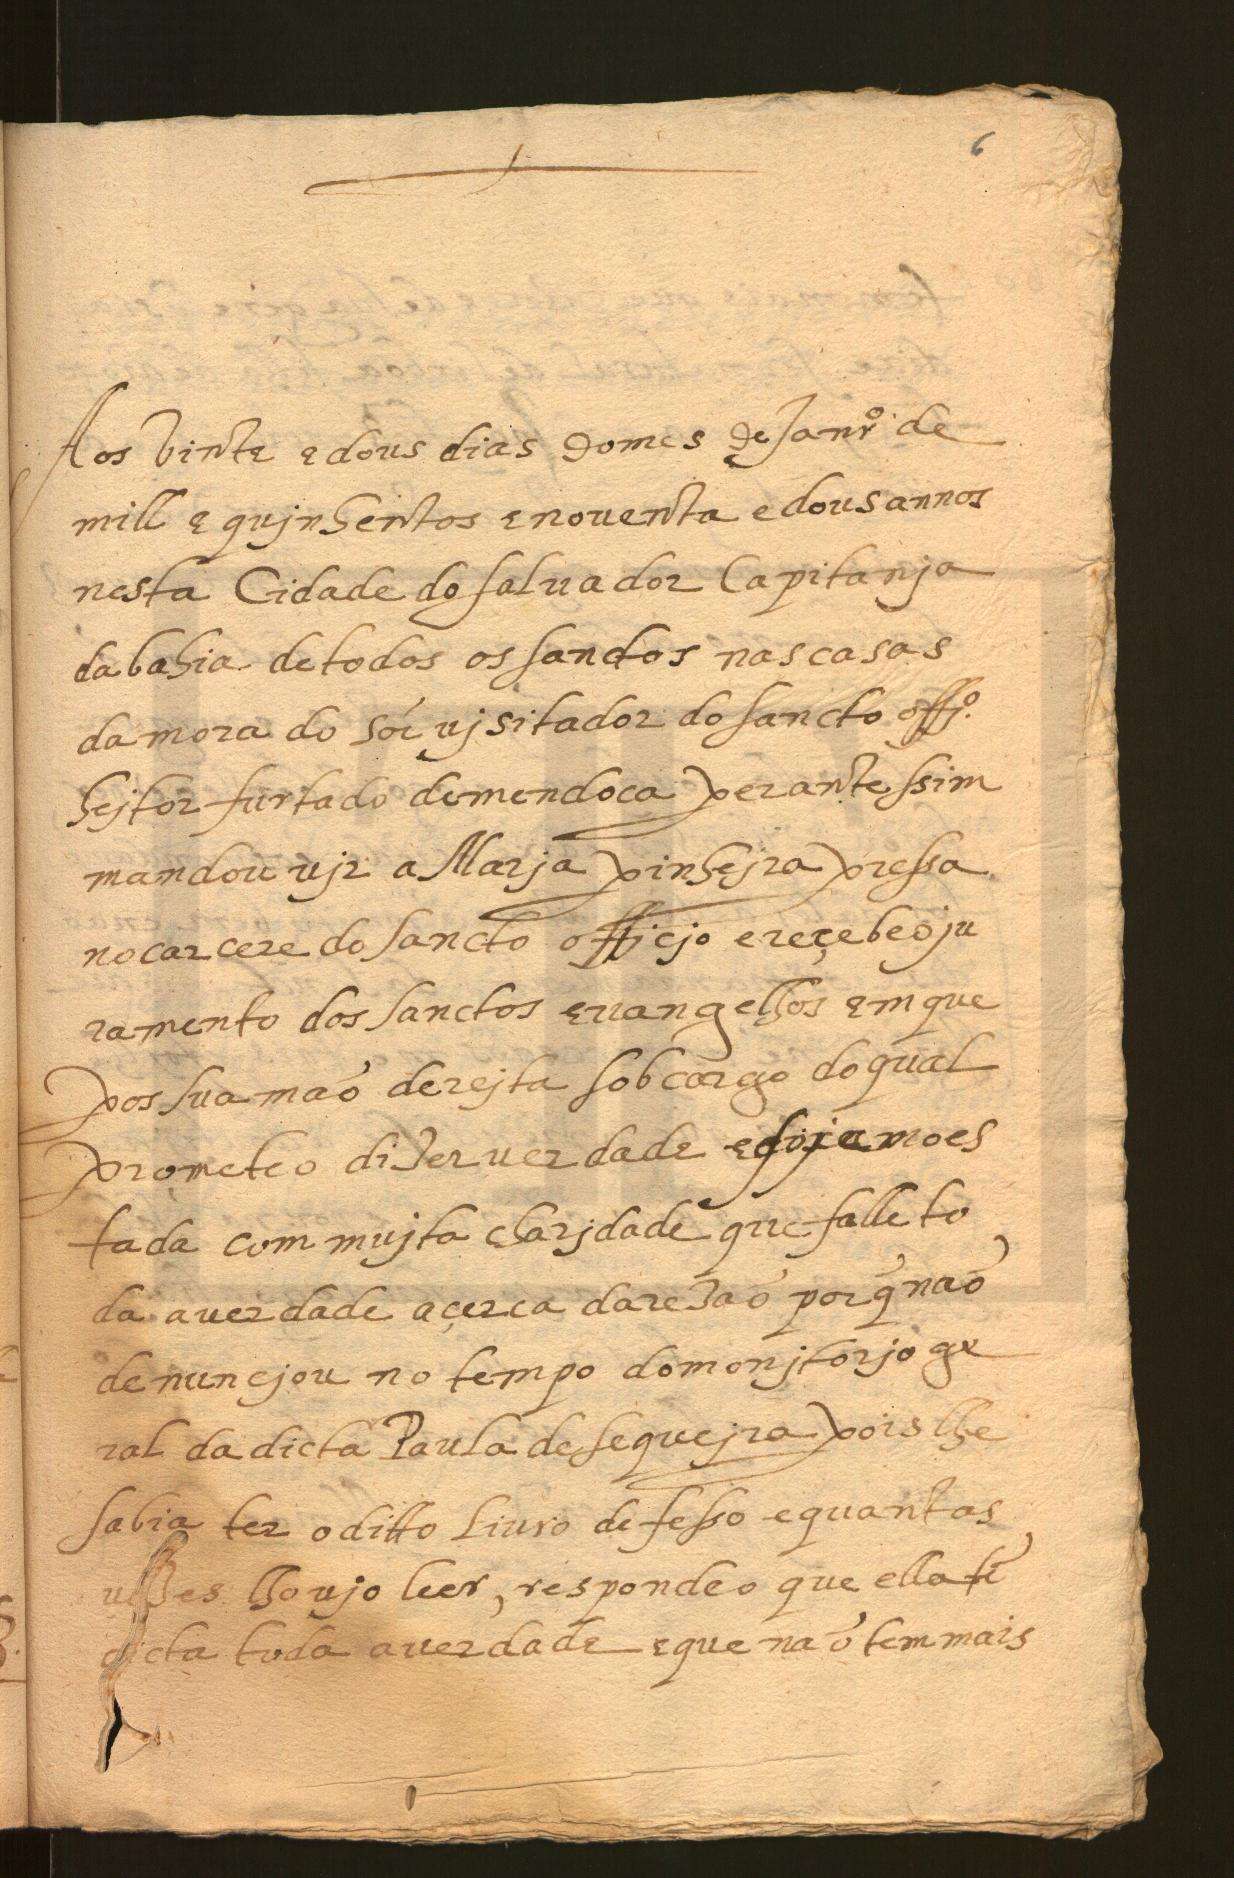 6
Aos vinte e dous dias do mes de Janrº de
mill e qujnhentos e nouenta e dous annos
nesta Cidade do saluador Capitanja
da bahia de todos os sanctos nas casas
da mora do sõr ujsitador do sancto offjº.
hejtor furtado de mendoca perante ssim
mandou ujr a Marja pinhejra pressa
no carcere do sancto officjo e reçebeo ju
ramento dos sanctos euangelhos em que
pos sua maõ derejta sob cargo do qual
prometeo dizer uerdade e foj amoes
tada com mujta charjdade que falle to
da a uerdade açerca da rezaõ porq̃ naõ
denuncjou no tempo do monjtorjo ge
ral da dicta Paula de sequejra pois lhe
sabia ter o ditto liuro defesso e quantas
uezes lho ujo leer, respondeo que ella tẽ
dicta toda a uerdade e que naõ tem mais